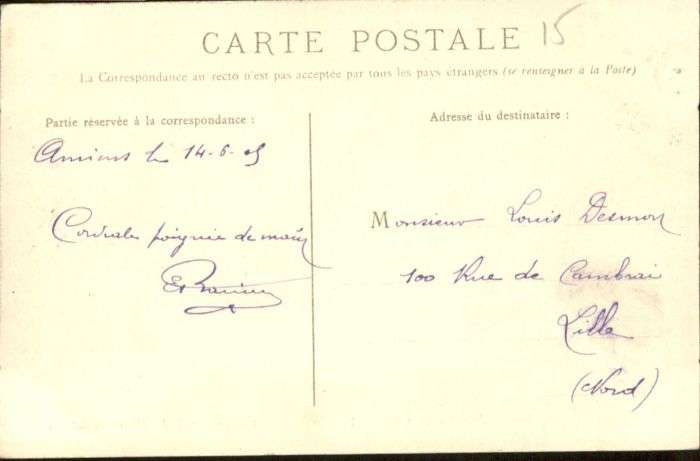 CARTE POSTALE
15
La Correspondance au recto n'est pas acceptée par tous les pays étrangers (se renseigner à la Poste)
Partie réservée à la correspondance :
Amiens le 14-6-05
Cordiale poignée de main
Adresse du destinataire :
Monsieur Louis
100 Rue de Cambrai
Lille
(Nord)